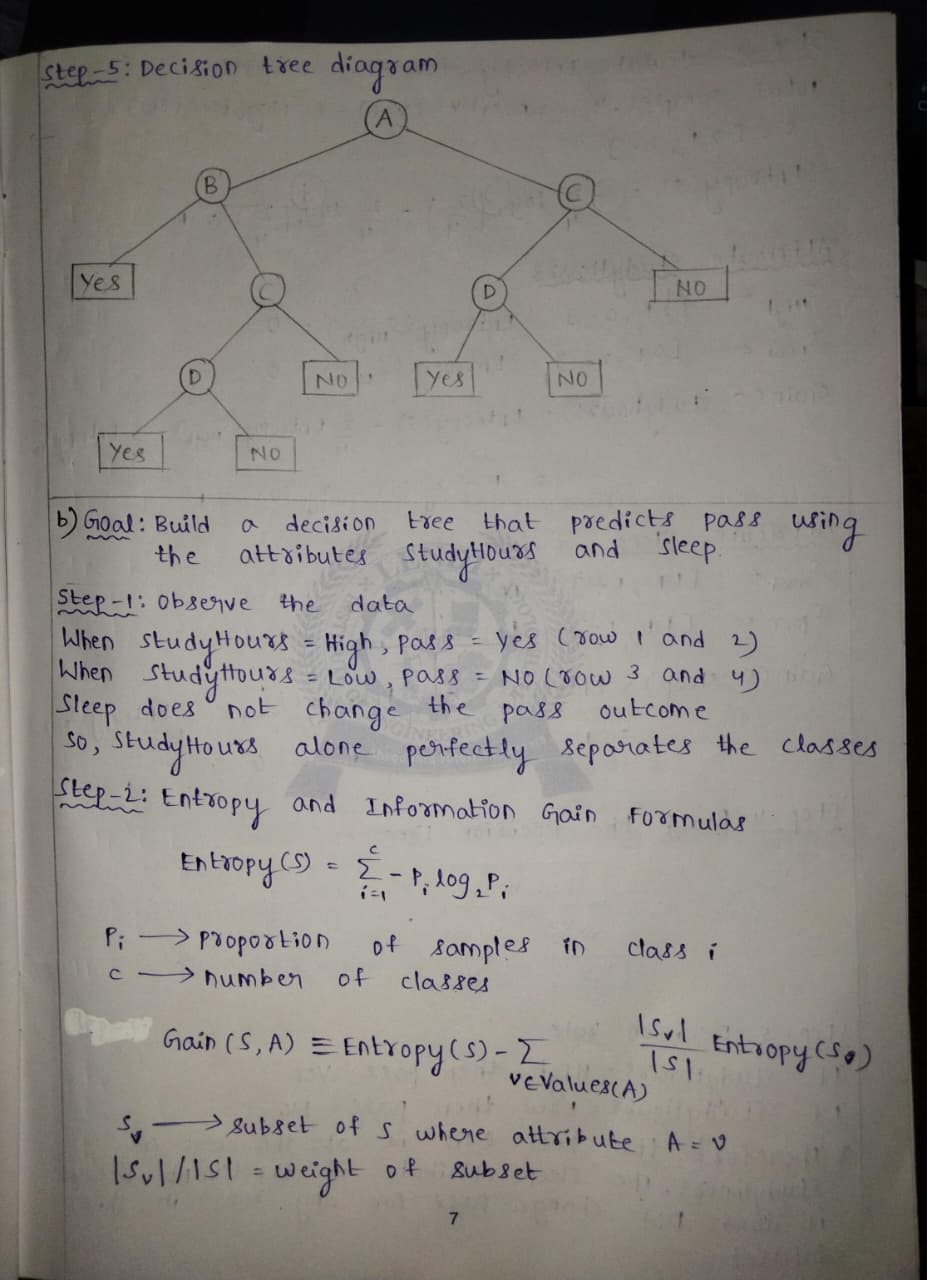 Step-5: Decision tree diagram
A
B
C
Yes
C
D
NO
D
NO
Yes
NO
Yes
NO
b) Goal: Build a decision tree that predicts pass using
the attributes StudyHours and Sleep.
Step-1: Observe the data
When StudyHours = High, pass = yes (row 1 and 2)
When StudyHours = Low, pass = NO (row 3 and 4)
Sleep does not change the pass outcome
So, StudyHours alone perfectly separates the classes
Step-2: Entropy and Information Gain Formulas
Entropy(S) = Σ_{i=1}^{c} - P_i log_2 P_i
P_i → proportion of samples in class i
c → number of classes
Gain (S, A) ≡ Entropy(S) - Σ_{v∈Values(A)} |S_v|/|S| Entropy(S_v)
S_v → subset of S where attribute A = v
|S_v|/|S| = weight of subset
7